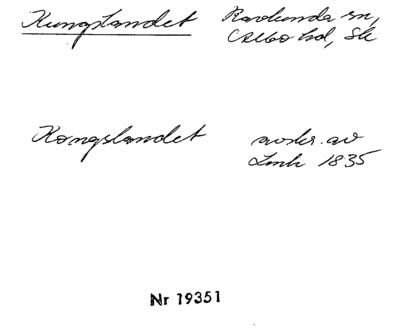 Kungslandet Ravlunda sn,
Albo hd, Sk
Kongslandet avskr. av
Lmh 1835
Nr 19351